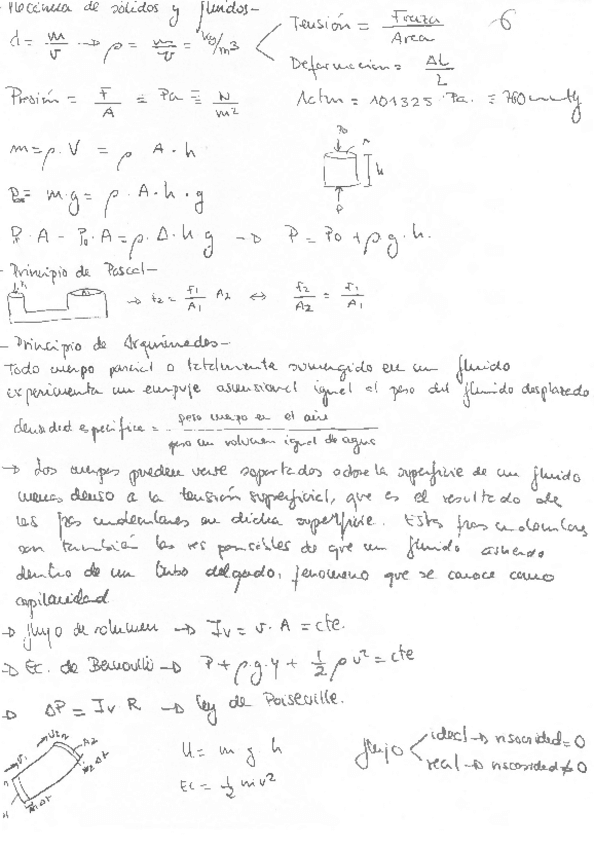 - Mecánica de sólidos y fluidos -
Tensión = Fuerza / Area
6
d = m/v → ρ = m/v = kg/m3
Deformacion = ΔL / L
Presión = F/A = Pa ≡ N/m²
1atm = 101325 Pa. ≡ 760mmHg
m = ρ.V = ρ A.h
P0
h
P
P = m.g = ρ.A.h.g
P.A - P0.A = ρ.A.h g → P = P0 + ρ.g.h.
- Principio de Pascal -
→ F2 = F1/A1 A2 ↔ F2/A2 = F1/A1
- Principio de Arquimedes -
Todo cuerpo parcial o totalmente sumergido en un fluido
experimenta un empuje ascensional igual al peso del fluido desplazado
densidad específica = peso cuerpo en el aire / peso un volumen igual de agua
→ Los cuerpos pueden verse soportados sobre la superficie de un fluido
menos denso a la tensión superficial, que es el resultado de
las fzas moleculares en dicha superficie. Estas fzas moleculares
son también las responsables de que un fluido ascienda
dentro de un tubo delgado, fenomeno que se conoce como
capilaridad
→ flujo de volumen → Iv = v.A = cte.
→ Ec. de Bernoulli → P + ρ.g.y + 1/2 ρv² = cte
→ ΔP = Iv R → Ley de Poiseville.
A2
U = m g h
Ec = 1/2 mv²
flujo
ideal → viscosidad = 0
real → viscosidad ≠ 0